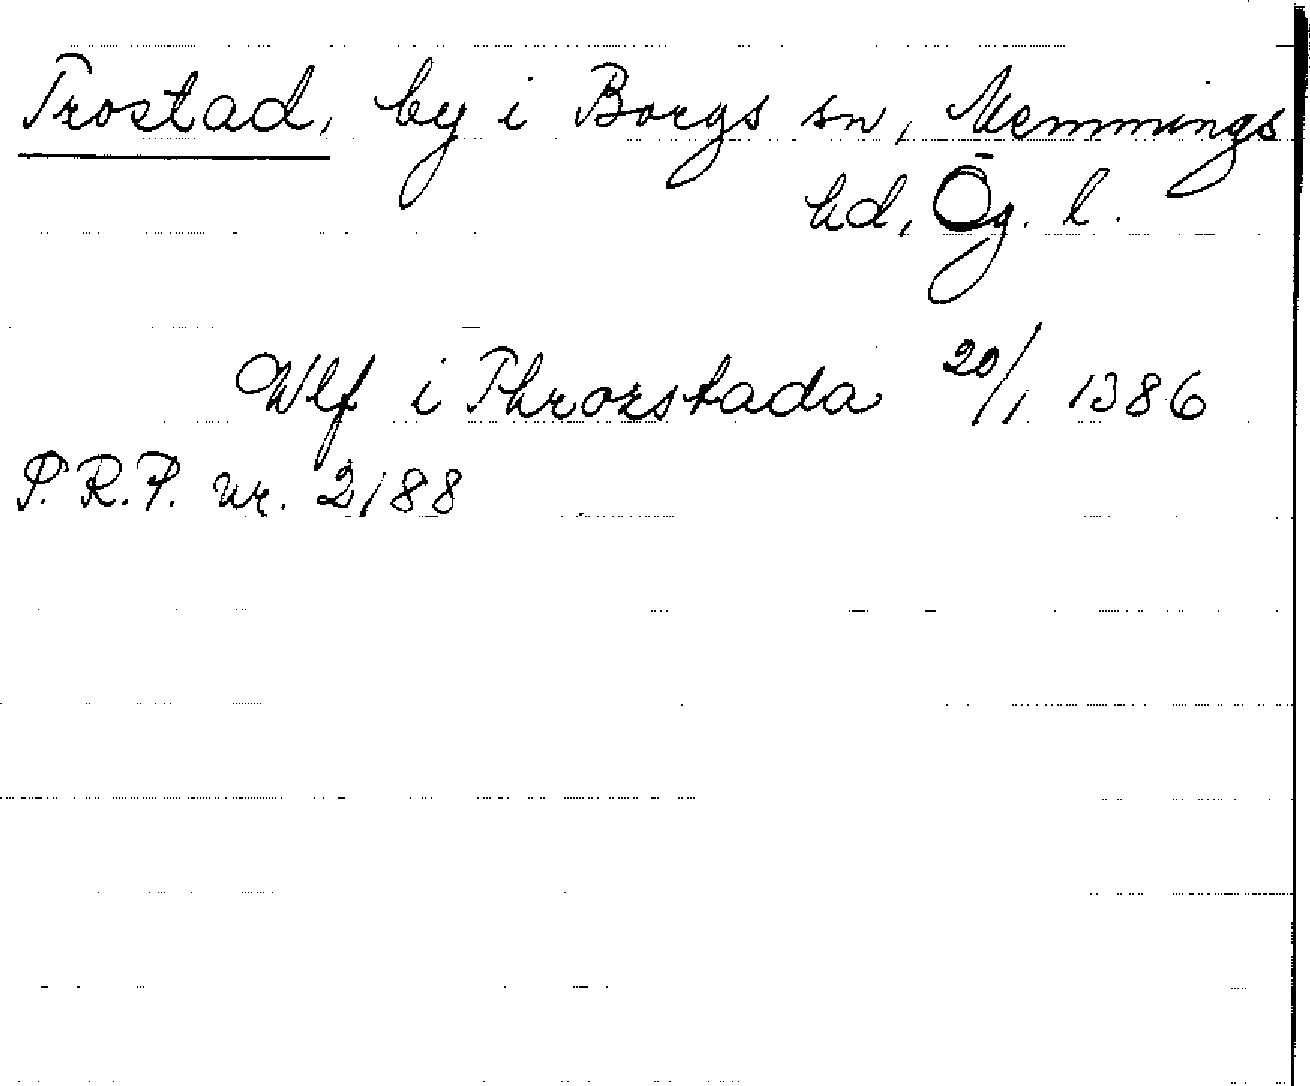 Trostad, by i Borgs sn, Memmings
hd, Ög. l.
Wlf i Throrstada 20/1 1386
P.R.P. nr. 2188